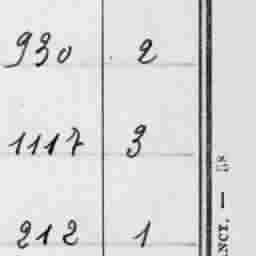 930 2
1117 3
212 1
NCT. —